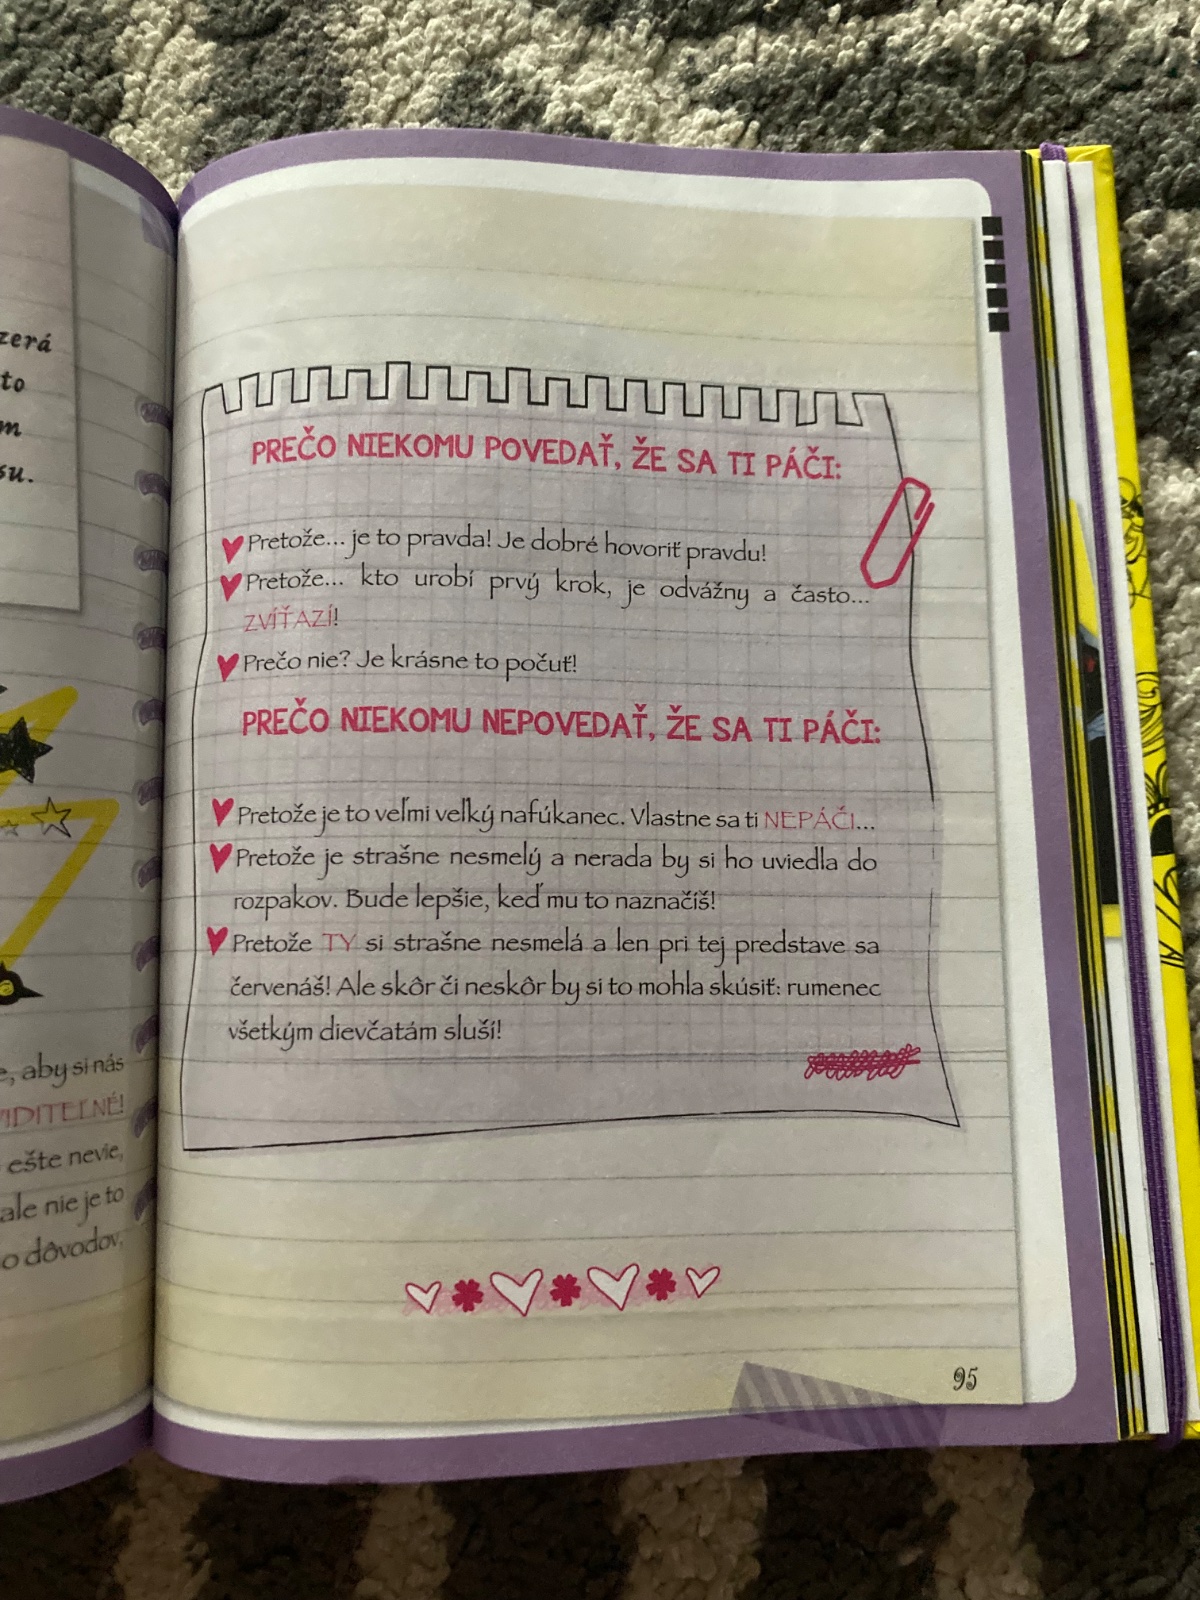 zerá
to
m
su.
, aby si nás
VIDITEĽNÉ!
ešte nevie,
ale nie je to
o dôvodov,
PREČO NIEKOMU POVEDAŤ, ŽE SA TI PÁČI:
Pretože... je to pravda! Je dobré hovoriť pravdu!
Pretože... kto urobí prvý krok, je odvážny a často...
ZVÍŤAZÍ!
Prečo nie? Je krásne to počuť!
PREČO NIEKOMU NEPOVEDAŤ, ŽE SA TI PÁČI:
Pretože je to veľmi veľký nafúkanec. Vlastne sa ti NEPÁČI...
Pretože je strašne nesmelý a nerada by si ho uviedla do
rozpakov. Bude lepšie, keď mu to naznačíš!
Pretože TY si strašne nesmelá a len pri tej predstave sa
červenáš! Ale skôr či neskôr by si to mohla skúsiť: rumenec
všetkým dievčatám sluší!
95